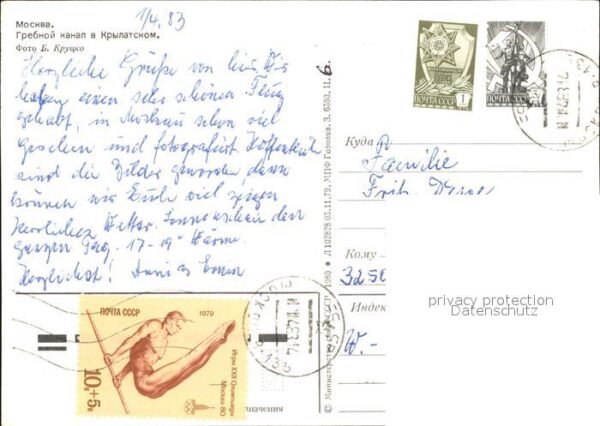 1/4.83
Москва.
Гребной канал в Крылатском.
Фото Б. Круцко
Herzliche Grüße von hier, Wir
haben einen sehr schönen Flug
gehabt, in Moskau schon viel
gesehen und fotografiert. Hoffentlich
sind die Bilder geworden, dann
können wir Euch viel zeigen
Herrliches Wetter. Sonnenschein den
ganzen Tag. 17-19° Wärme.
Herzlichst!
ПОЧТА СССР 1
ПОЧТА СССР
Куда
Familie
Кому
3250
Индекс
W.-
privacy protection
Datenschutz
6.
Л 102828 05.11.79. МПФ Гознака. З. 6593. Ц.
© Министерство 1980
ПОЧТА СССР 1979
Игры XXII Олимпиады
Москва 80
10к+5к
значения